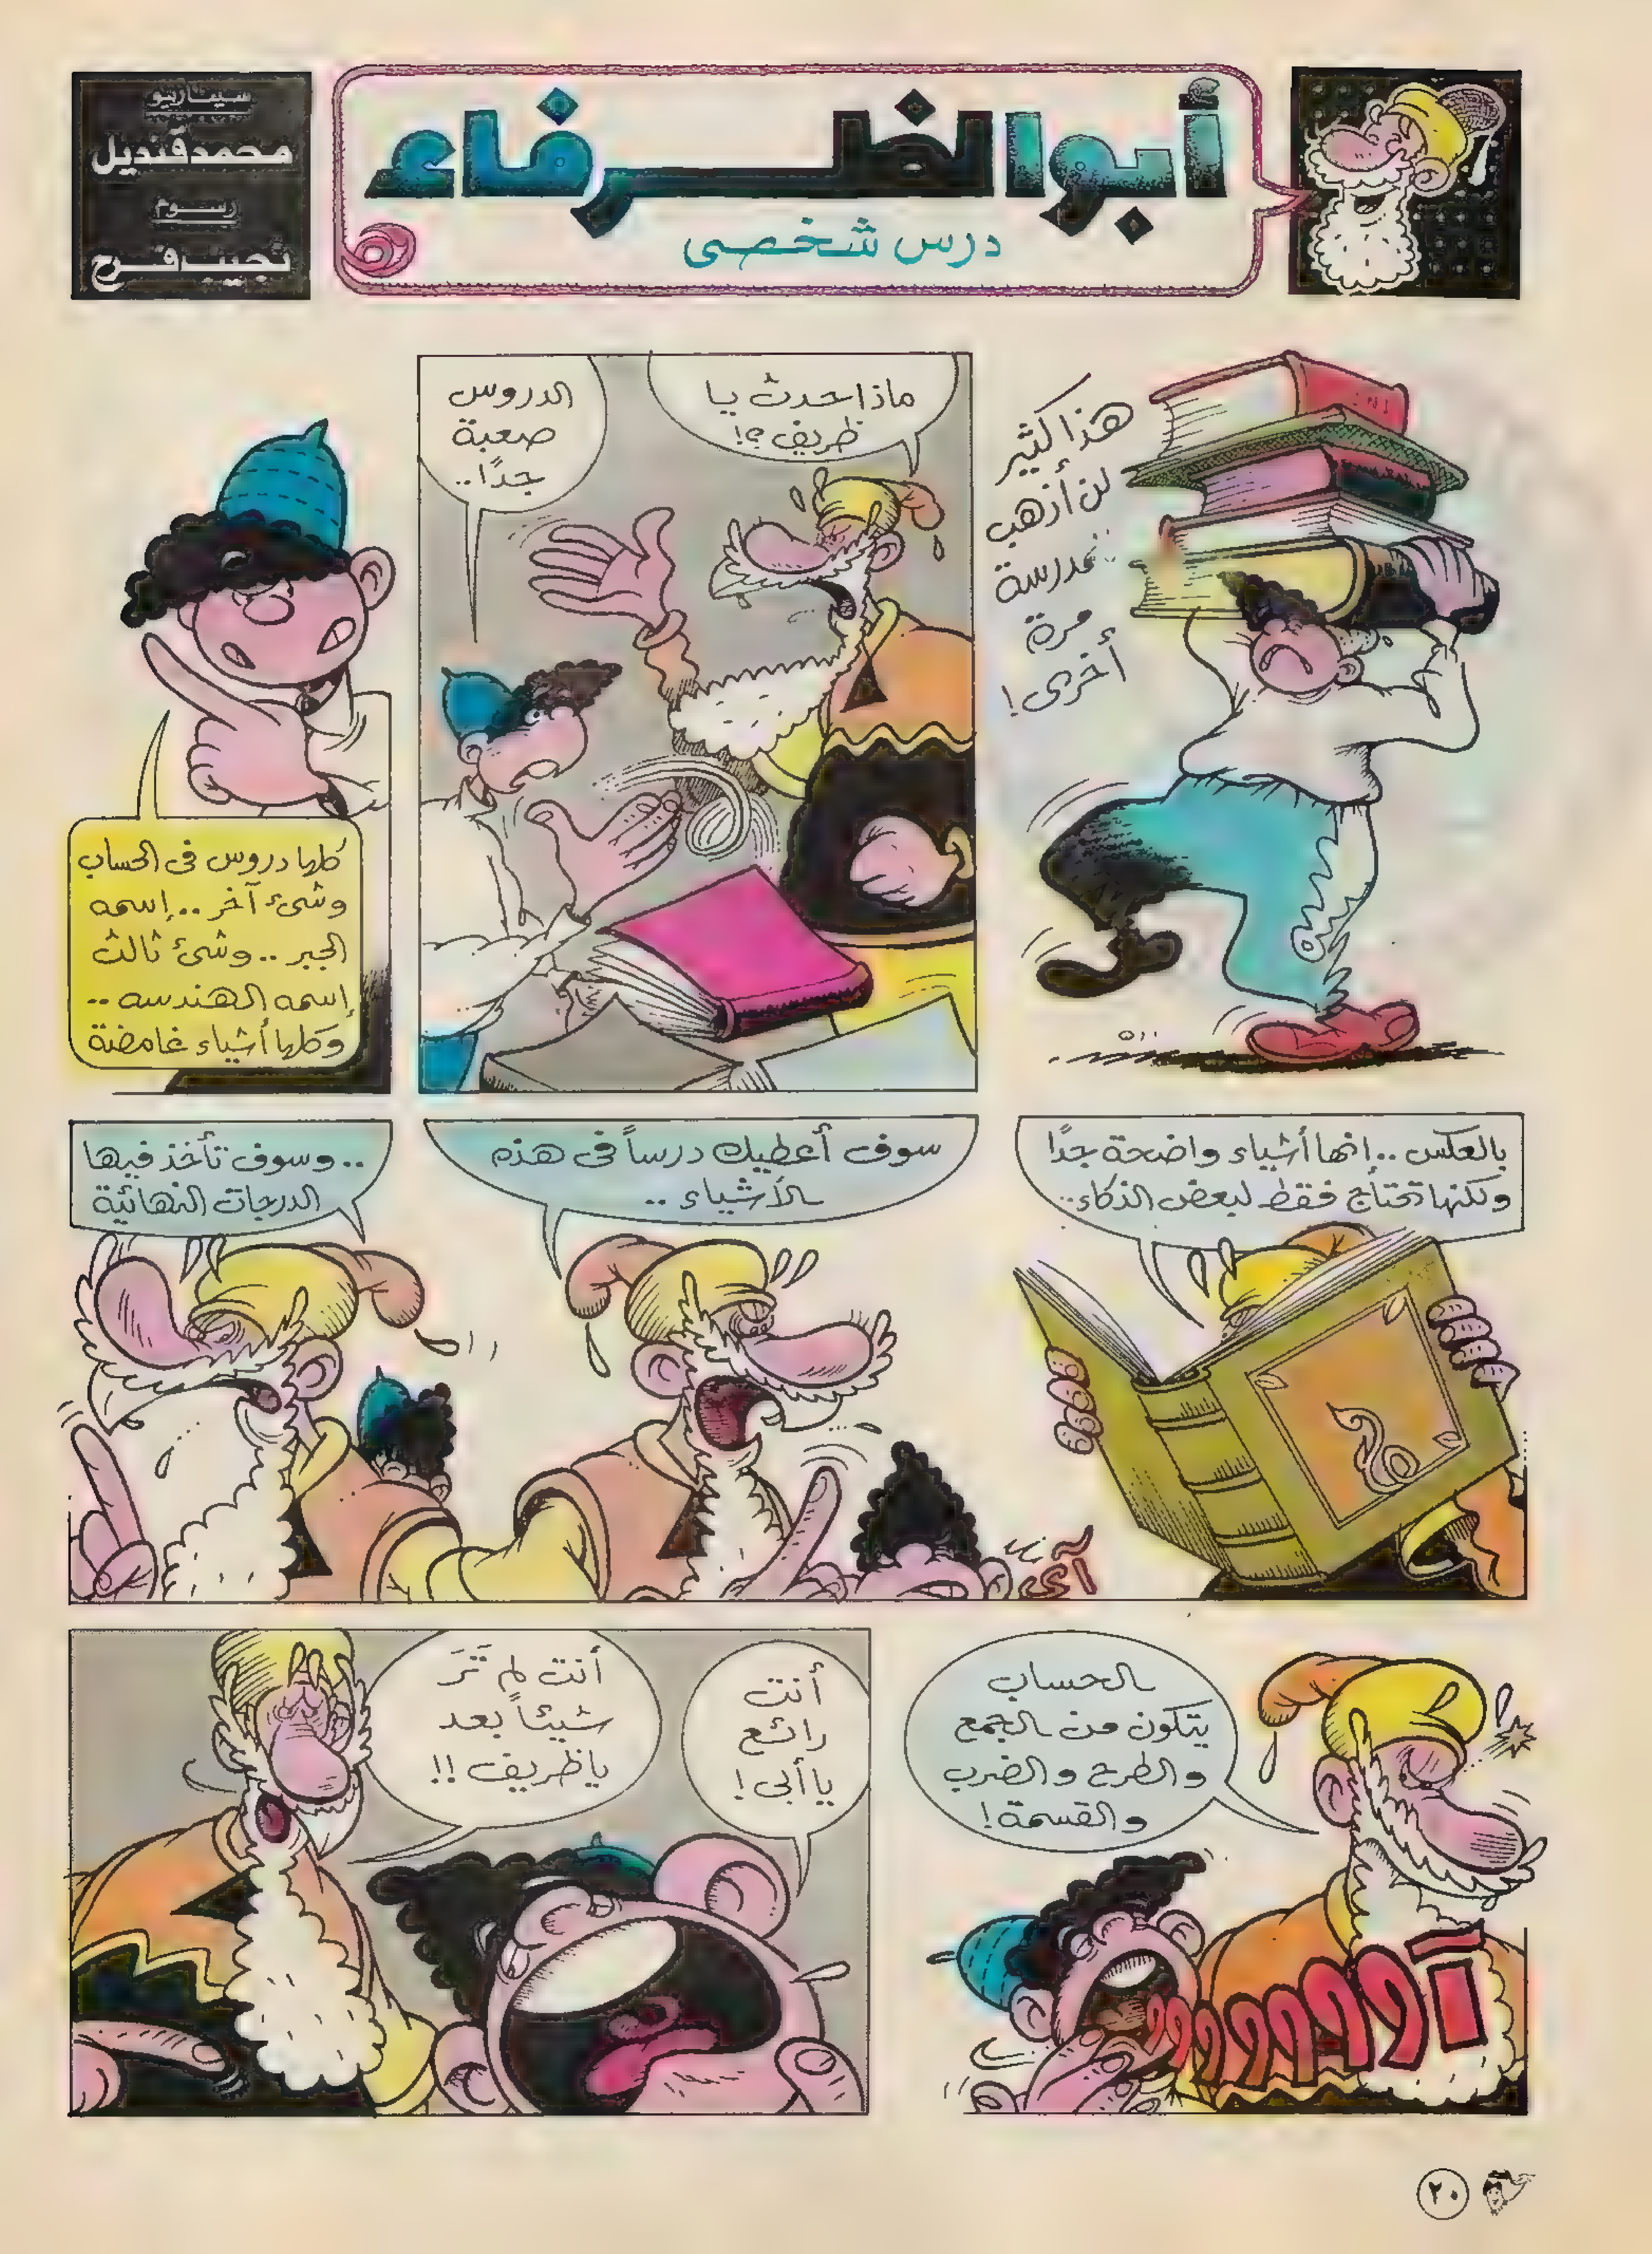 أبو الظرفاء
درس شخصى
سيناريو
محمد قنديل
رسوم
نجيب فرج
هذا كثير
لن أذهب
للمدرسة
مرة
أخرى!
ماذا حدث يا
ظريف؟!
الدروس
صعبة
جدًا..
كلها دروس فى الحساب
وشئ آخر .. إسمه
الجبر .. وشئ ثالث
إسمه الهندسه ..
وكلها أشياء غامضة
بالعكس .. إنها أشياء واضحة جدًا
ولكنها تحتاج فقط لبعض الذكاء..
سوف أعطيك درساً فى هذه
الأشياء ..
آى
.. وسوف تأخذ فيها
الدرجات النهائية
الحساب
يتكون من الجمع
والطرح والضرب
والقسمة!
أنت
رائع
يا أبى!
أنت لم تَرَ
شيئاً بعد
ياظريف !!
٢٠